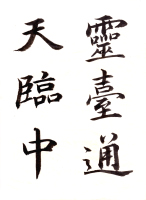 靈臺通
天臨中